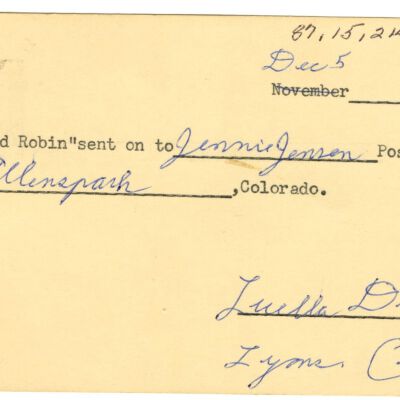 87,15,24
Dec 5
November
d Robin"sent on to Jennie Jensen Pos
Allenspark ,Colorado.
Luella D
Lyons. C